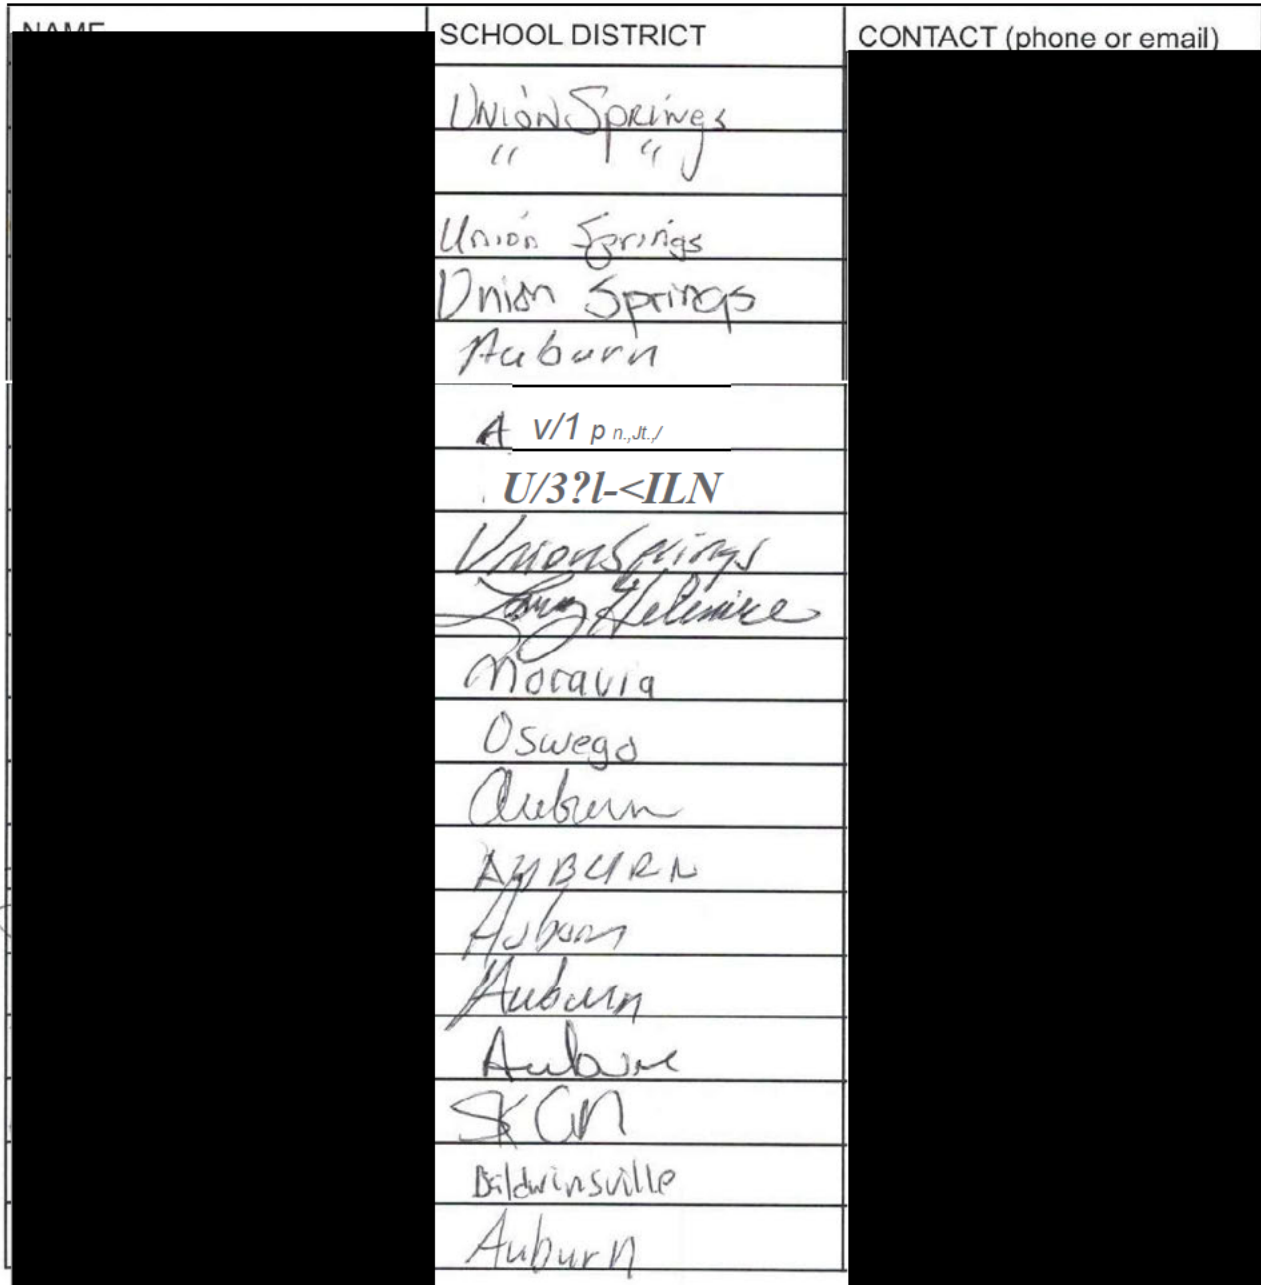 NAME SCHOOL DISTRICT CONTACT (phone or email)
Union Springs
" "
Union Springs
Union Springs
Auburn
A v/1 p n.,Jt.,/
U/3?l-<ILN
Union Springs
Moravia
Oswego
Auburn
AUBURN
Auburn
Auburn
Auburn
Baldwinsville
Auburn